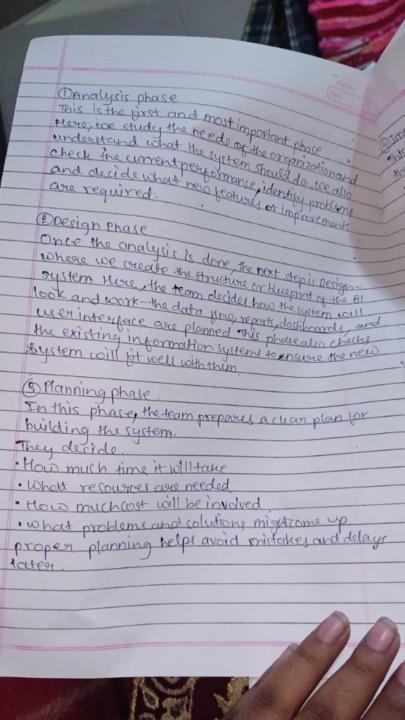 ① Analysis phase
This is the first and most important phase
Here, we study the needs of the organization and
understand what the system should do. we also
check the current performance, identify problems
and decide what new features or improvements
are required.
② Design phase
Once the analysis is done, the next step is design-
where we create the structure or blueprint of the BI
system Here, the team decides how the system will
look and work - the data flow, reports, dashboards, and
user interface are planned This phase also checks
the existing information systems to ensure the new
system will fit well with them.
③ Planning phase.
In this phase, the team prepares a clear plan for
building the system.
They decide.
• How much time it will take
• what resources are needed
• How much cost will be involved
• what problems and solutions might come up
proper planning helps avoid mistakes and delays
later.